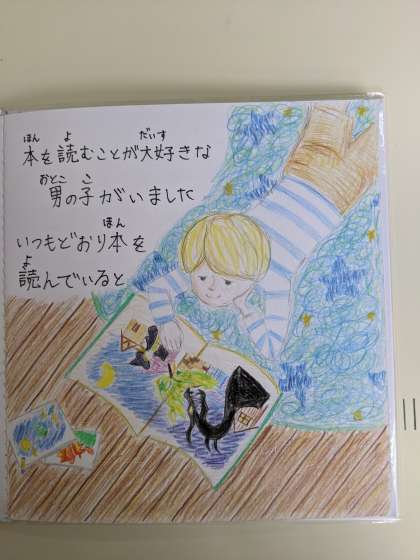 本を読むことが大好きな
男の子がいました
いつもどおり本を
読んでいると